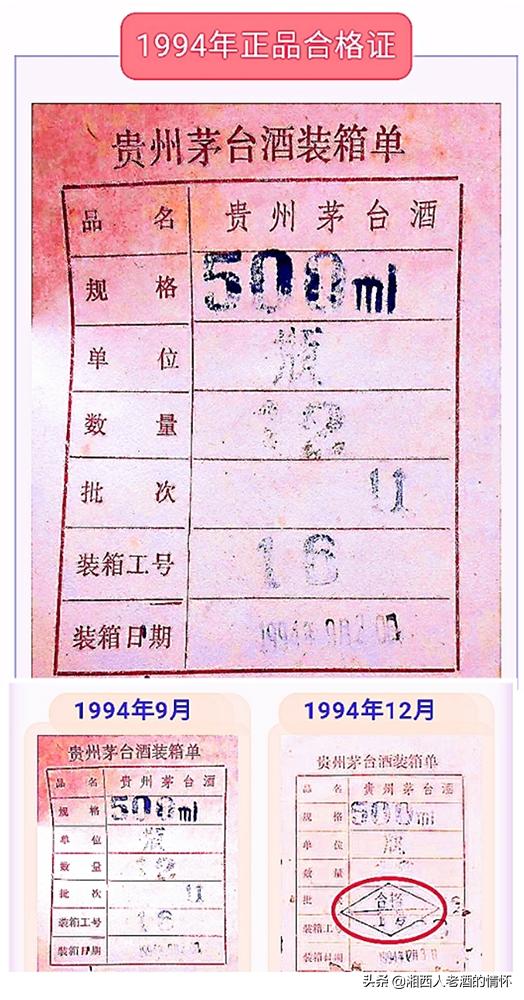 1994年正品合格证
贵州茅台酒装箱单
品 名 贵州茅台酒
规 格 500ml
单 位 瓶
数 量 12
批 次 11
装箱工号 16
装箱日期
1994年9月
贵州茅台酒装箱单
品 名 贵州茅台酒
规 格 500ml
单 位 瓶
数 量 12
批 次 11
装箱工号 16
装箱日期
1994年12月
贵州茅台酒装箱单
品 名 贵州茅台酒
规 格 500ml
单 位 瓶
数 量
批
合格
装箱工
装箱日期
头条 @湘西人老酒的情怀